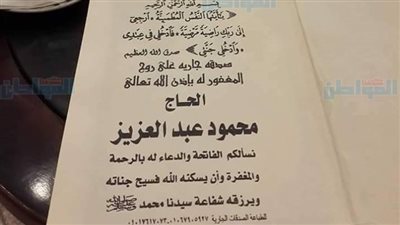 بسم الله الرحمن الرحيم
﴿ يا أيتها النفس المطمئنة ۝ ارجعي
إلى ربك راضية مرضية ۝ فادخلي في عبادي
۝ وادخلي جنتي ﴾ صدق الله العظيم
صدقه جاريه على روح
المغفور له بإذن الله تعالى
الحاج
محمود عبد العزيز
نسألكم الفاتحة والدعاء له بالرحمة
والمغفرة وأن يسكنه الله فسيح جناته
ويرزقه شفاعة سيدنا محمد ﷺ
لطباعة الصدقات الجارية
المواطن